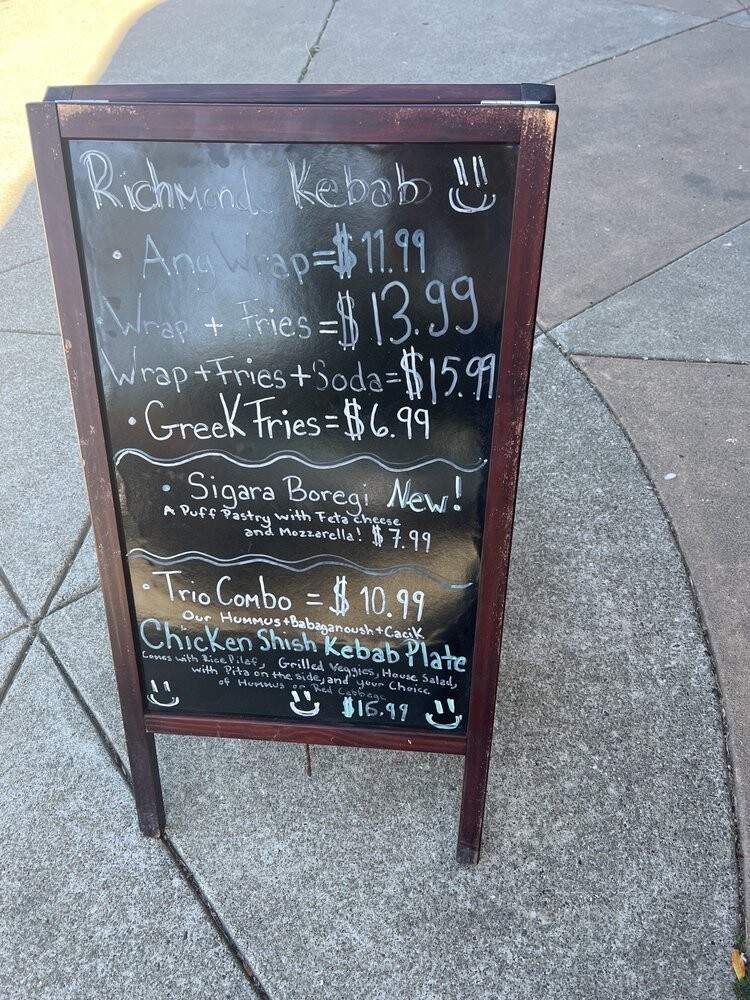 Richmond Kebab
• Any Wrap = $11.99
Wrap + Fries = $13.99
Wrap + Fries + Soda = $15.99
• Greek Fries = $6.99
• Sigara Boregi New!
A Puff Pastry with Feta cheese
and Mozzarella! $7.99
• Trio Combo = $10.99
Our Hummus + Babaganoush + Cacik
Chicken Shish Kebab Plate
Comes with Rice Pilaf, Grilled Veggies, House Salad,
with Pita on the side, and your Choice
of Hummus or Red Cabbage
$16.99